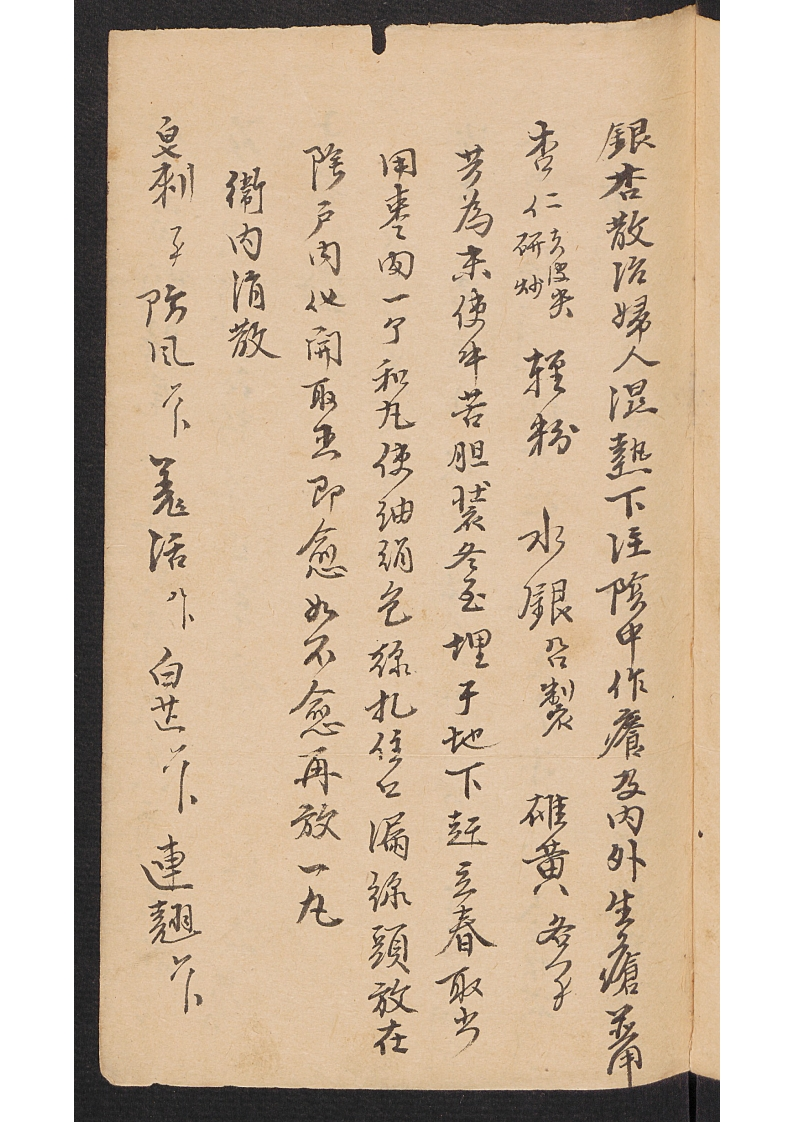 銀杏散治婦人湿熱下注陰中作癢及内外生瘡並用
杏仁去皮尖研炒 輕粉 水銀召製 雄黃各一子
共為末使牛苦胆裝冬至埋于地下赶立春取出
用棗肉一个和丸使紬絹包線扎住口漏線頭放在
陰户内他開取出即愈如不愈再放一丸
衛内消散
皂刺 防風 羗活 白芷 連翹